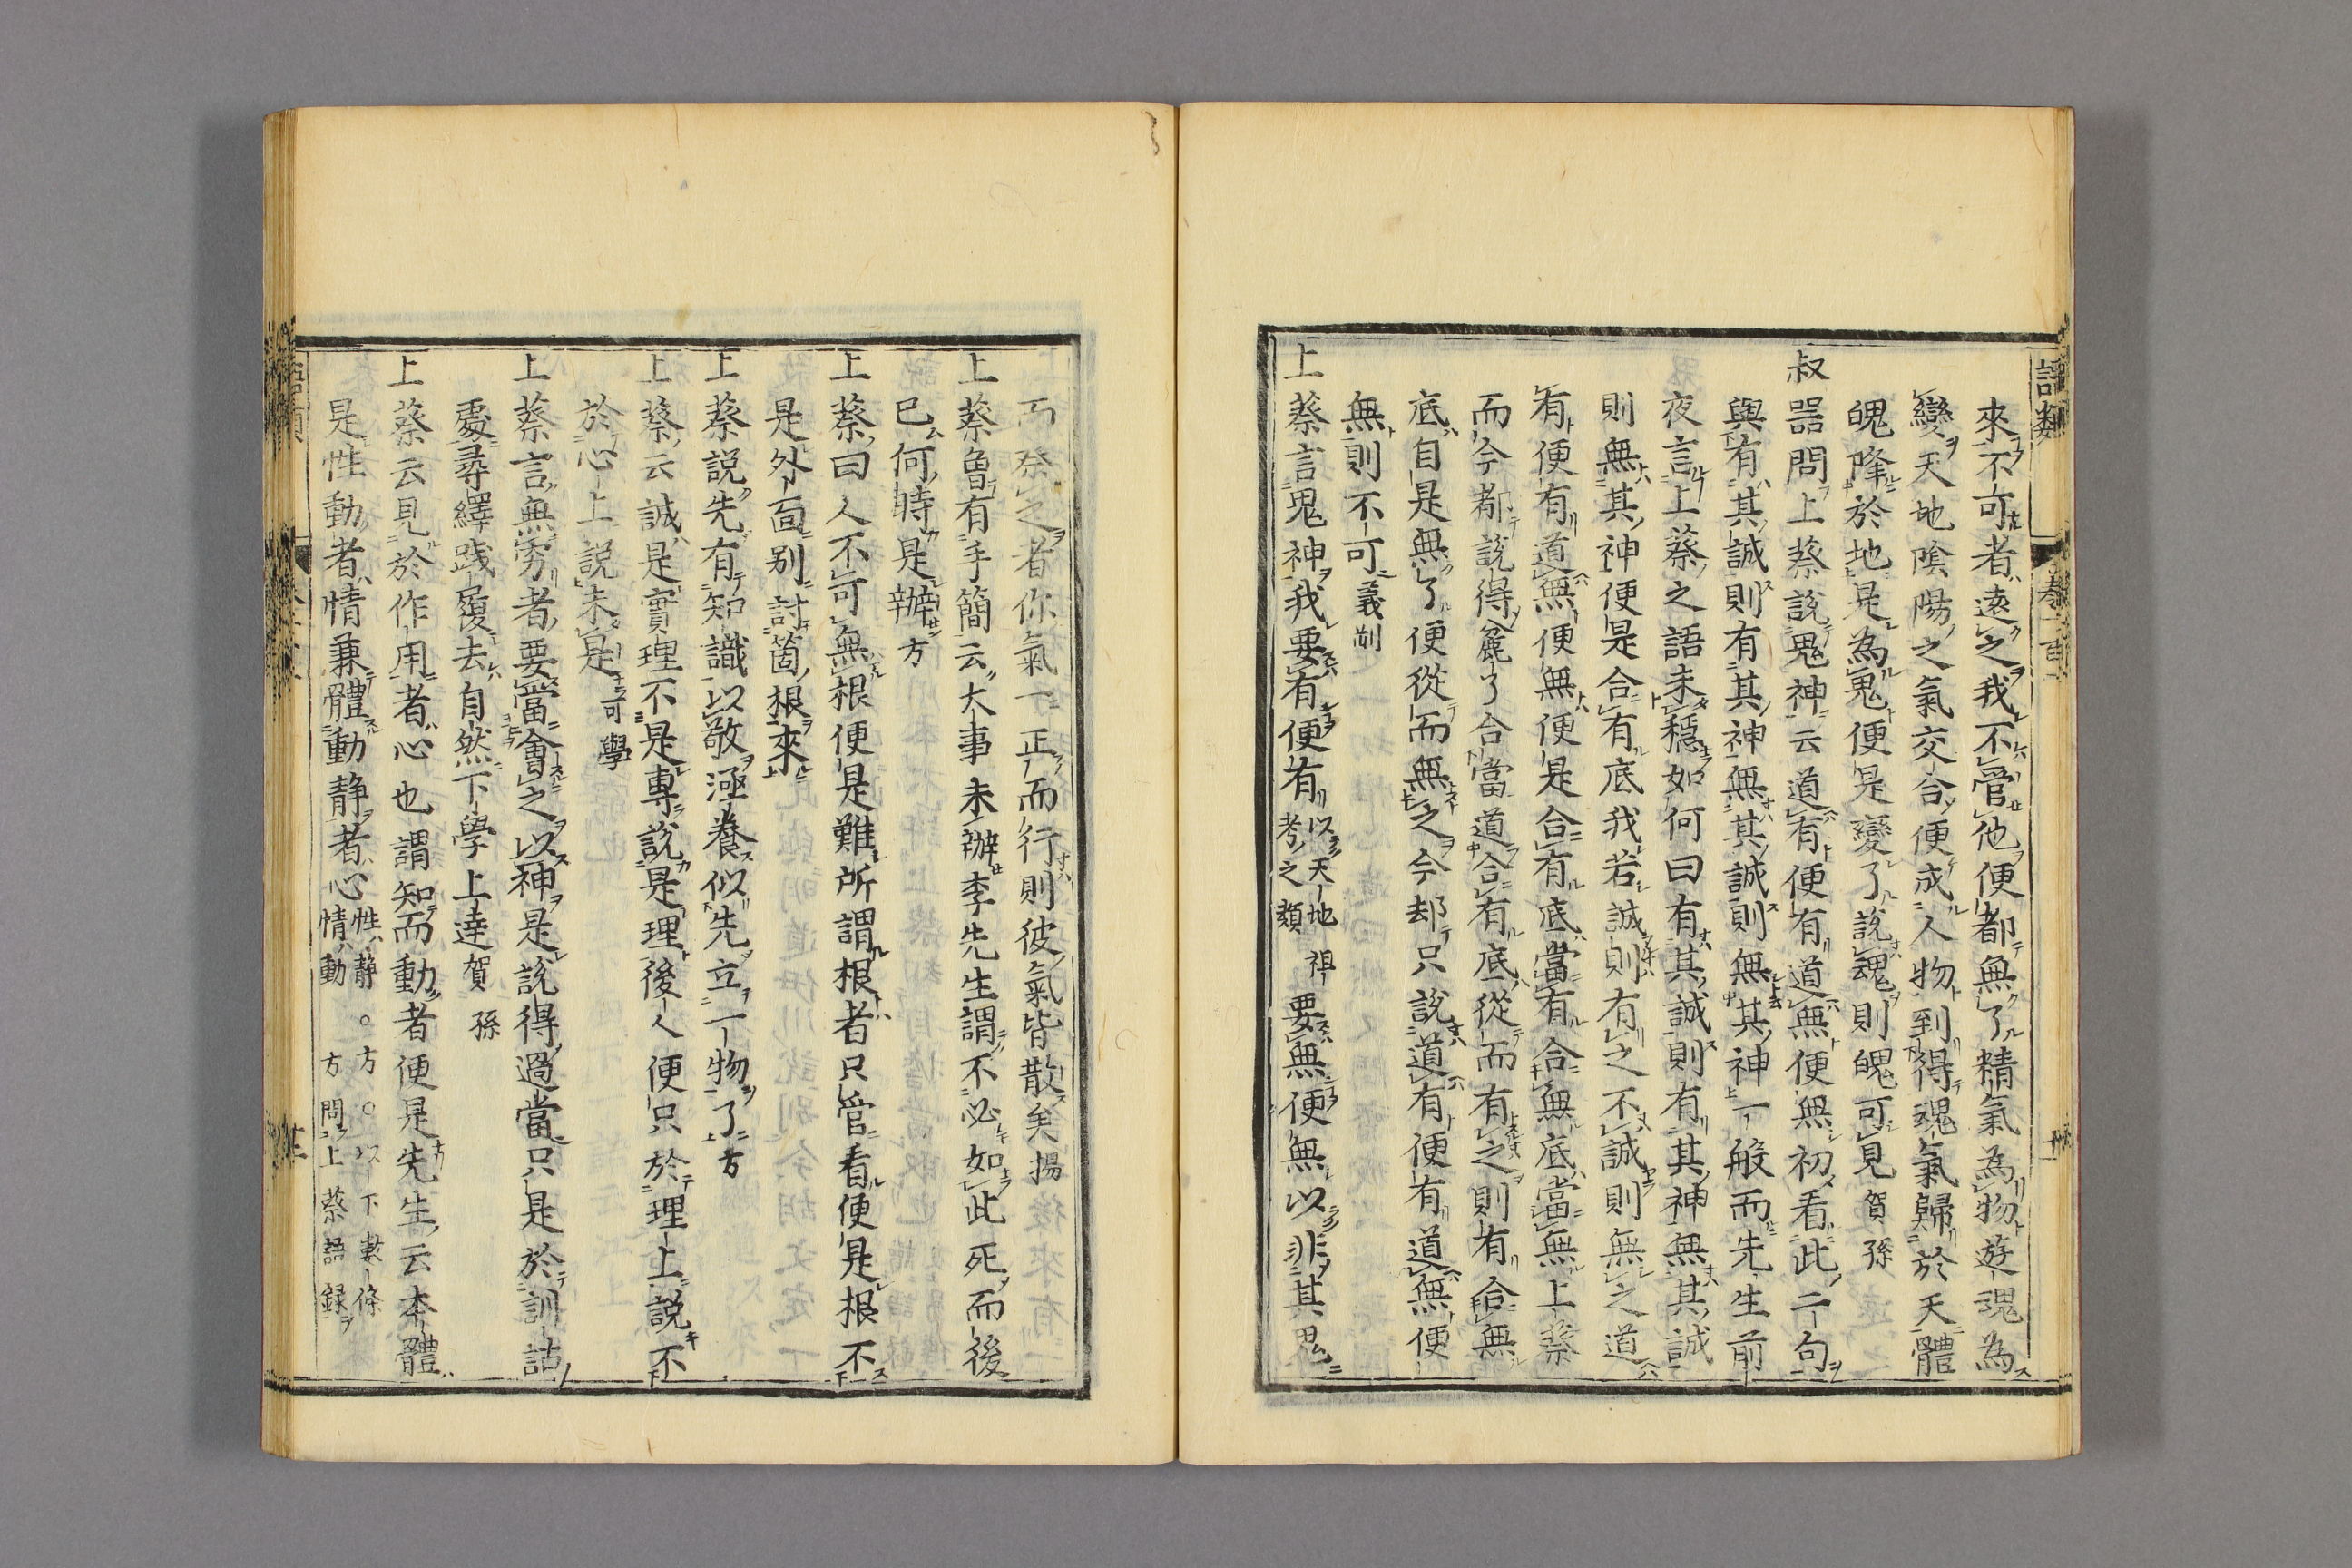 語類 卷一百一
來不可者遠之我不管他便都無了精氣為物遊魂為
變天地陰陽之氣交合便成人物到得魂氣歸於天體
魄降於地是為鬼便是變了說魂則魄可見賀孫
叔器問上蔡說鬼神云道有便有道無便無初看此二句
與有其誠則有其神無其誠則無其神一般而先生前
夜言上蔡之語未穩如何曰有其誠則有其神無其誠
則無其神便是合有底我若誠則有之不誠則無之道
有便有道無便無便是合有底當有合無底當無上蔡
而今都說得麁了合當道合有底從而有之則有合無
底自是無了便從而無之今却只說道有便有道無便
無則不可義剛
上蔡言鬼神我要有便有以天地祖考之類要無便無以非其鬼
而祭之者你氣一正而行則彼氣皆散矣揚
上蔡曾有手簡云大事未辦李先生謂不必如此死而後
已何時是辦方
上蔡曰人不可無根便是難所謂根者只管看便是根不
是外面別討箇根來
上蔡說先有知識以敬涵養似先立一物了方
上蔡云誠是實理不是專說是理後人便只於理上說不
於心上說未是可學
上蔡言無窮者要當會之以神是說得過當只是於訓詁
處尋繹踐履去自然下學上達賀孫
上蔡云見於作用者心也謂知而動者便是先生云本體
是性動者情兼體動靜者心性靜情動。方。以下數條方問上蔡語録
語類